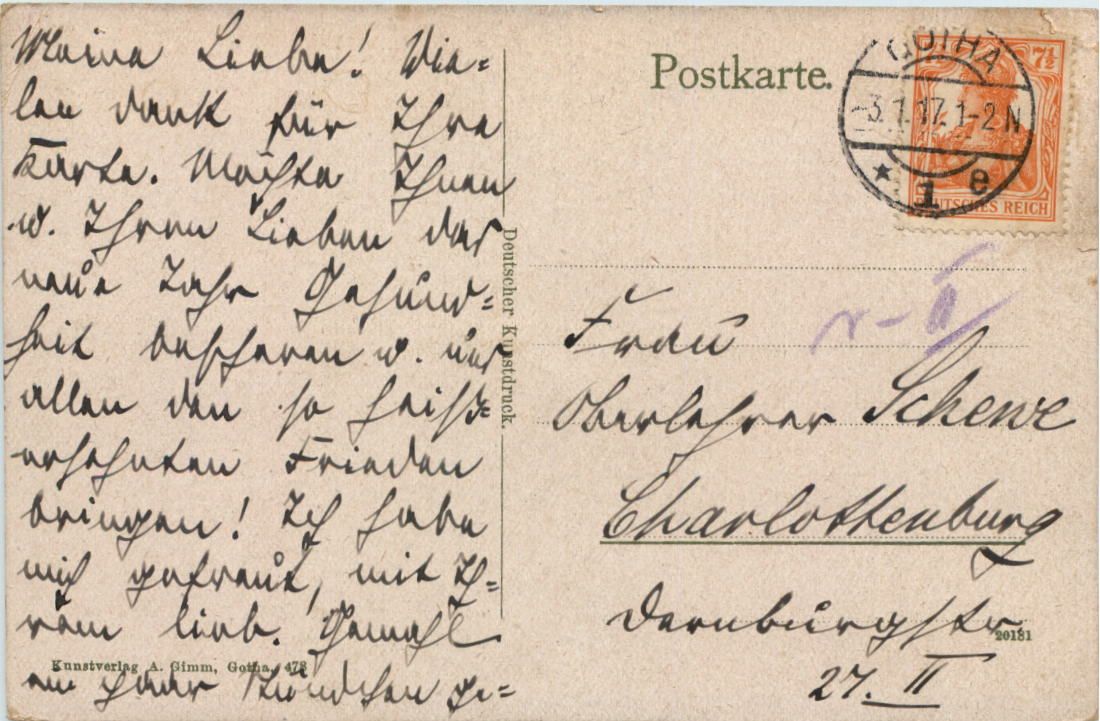 Meine Liebe! Vie-
len Dank für Ihre
Karte. Möchte Ihnen
u. Ihren Lieben das
neue Jahr Gesund-
heit bescheren u. uns
allen den so heiß-
ersehnten Frieden
bringen! Ich habe
mich gefreut, mit Ih-
rem lieb. Gemahl
ein paar Stündchen ge-
Kunstverlag A. Gimm, Gotha. 478
Deutscher Kunstdruck.
Postkarte.
GOTHA
3.1.17. 1-2 N
* 1 e
7½
DEUTSCHES REICH
Frau
Oberlehrer Schewe
Charlottenburg
Dernburgstr
20181
27. II